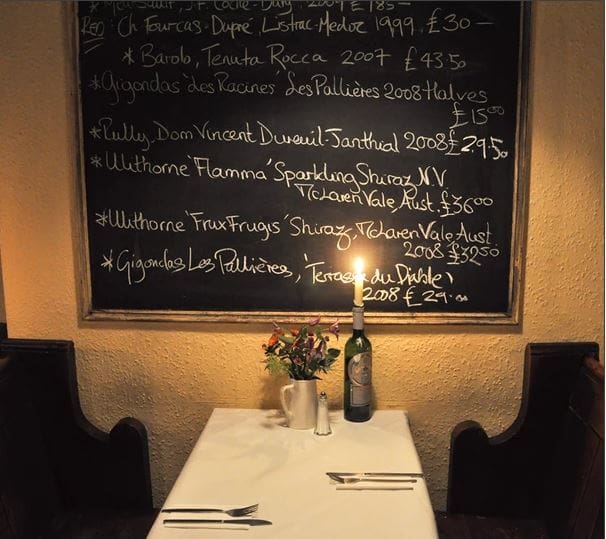 * Meursault, J.F. Coche-Dury, 2007 £185—
RED: Ch Fourcas-Dupré, Listrac-Medoc 1999, £30—
* Barolo, Tenuta Rocca 2007 £43.50
* Gigondas 'Les Racines' Les Pallières 2008 Halves
£15.00
* Rully, Dom Vincent Dureuil-Janthial 2008 £29.50
* Ulithorne 'Flamma' Sparkling Shiraz N.V.
McLaren Vale, Aust. £36.00
* Ulithorne 'Frux Frugis' Shiraz, McLaren Vale, Aust
2008 £32.50
* Gigondas Les Pallières, 'Terrasse du Diable'
2008 £29.00